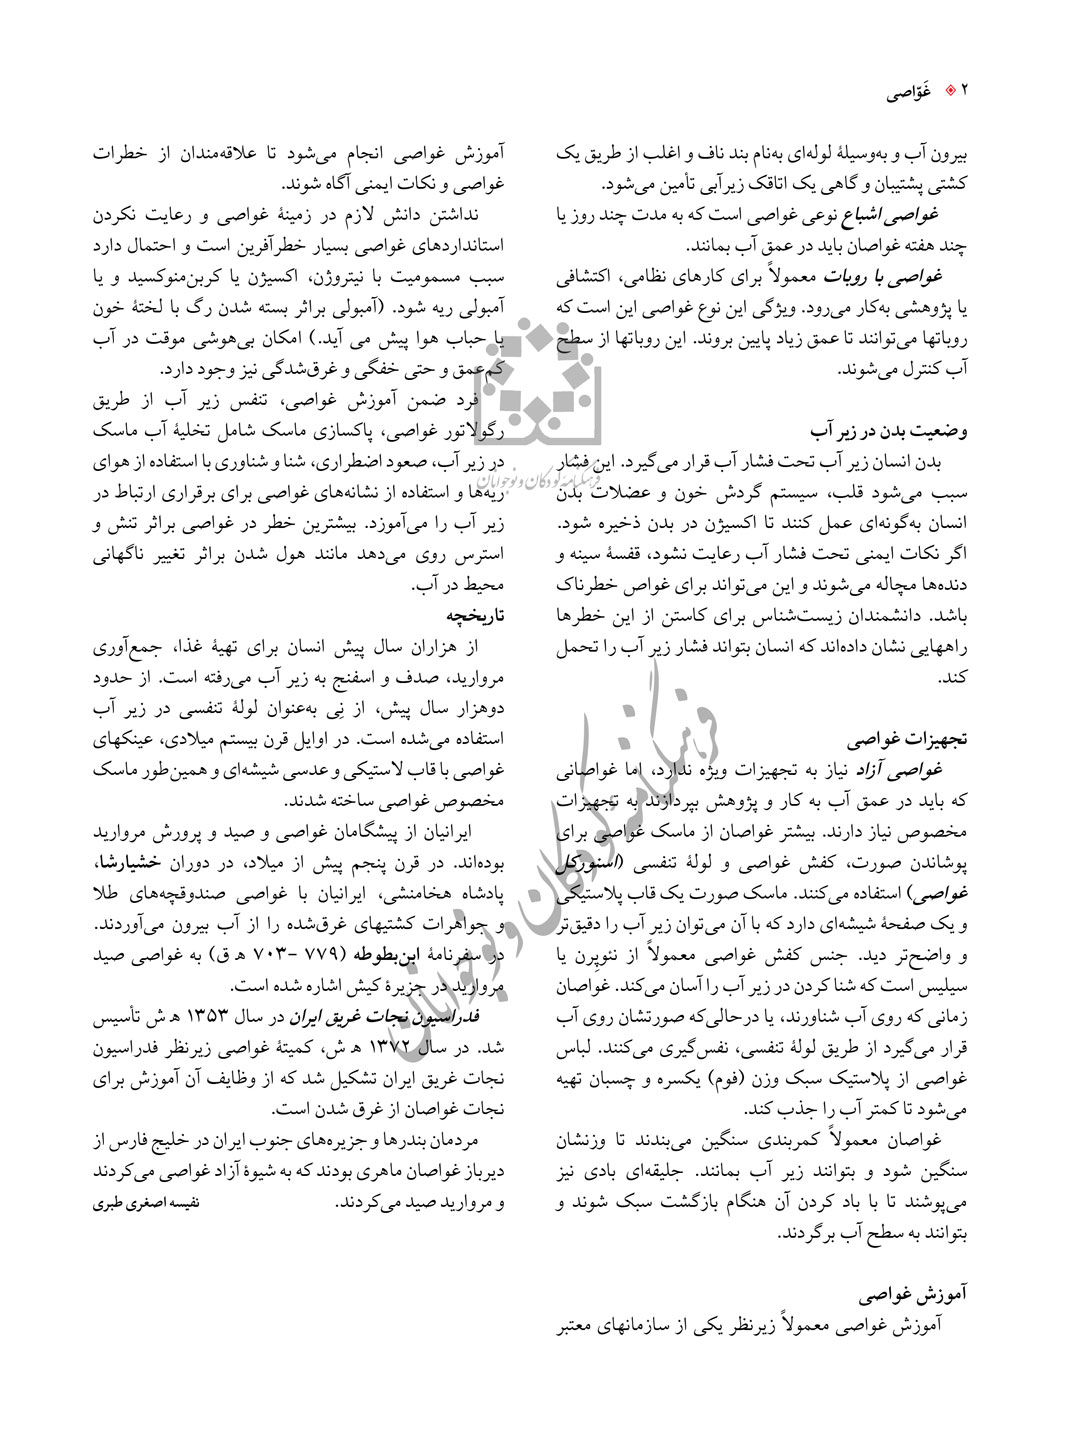 ۲ غَوّاصی
بیرون آب و به‌وسیلهٔ لوله‌ای به‌نام بند ناف و اغلب از طریق یک
کشتی پشتیبان و گاهی یک اتاقک زیرآبی تأمین می‌شود.
غواصی اشباع نوعی غواصی است که به مدت چند روز یا
چند هفته غواصان باید در عمق آب بمانند.
غواصی با روبات معمولاً برای کارهای نظامی، اکتشافی
یا پژوهشی به‌کار می‌رود. ویژگی این نوع غواصی این است که
روباتها می‌توانند تا عمق زیاد پایین بروند. این روباتها از سطح
آب کنترل می‌شوند.
وضعیت بدن در زیر آب
بدن انسان زیر آب تحت فشار آب قرار می‌گیرد. این فشار
سبب می‌شود قلب، سیستم گردش خون و عضلات بدن
انسان به‌گونه‌ای عمل کنند تا اکسیژن در بدن ذخیره شود.
اگر نکات ایمنی تحت فشار آب رعایت نشود، قفسهٔ سینه و
دنده‌ها مچاله می‌شوند و این می‌تواند برای غواص خطرناک
باشد. دانشمندان زیست‌شناس برای کاستن از این خطرها
راههایی نشان داده‌اند که انسان بتواند فشار زیر آب را تحمل
کند.
تجهیزات غواصی
غواصی آزاد نیاز به تجهیزات ویژه ندارد، اما غواصانی
که باید در عمق آب به کار و پژوهش بپردازند به تجهیزات
مخصوص نیاز دارند. بیشتر غواصان از ماسک غواصی برای
پوشاندن صورت، کفش غواصی و لولهٔ تنفسی (اسنورکل
غواصی) استفاده می‌کنند. ماسک صورت یک قاب پلاستیکی
و یک صفحهٔ شیشه‌ای دارد که با آن می‌توان زیر آب را دقیق‌تر
و واضح‌تر دید. جنس کفش غواصی معمولاً از نئوپِرن یا
سیلیس است که شنا کردن در زیر آب را آسان می‌کند. غواصان
زمانی که روی آب شناورند، یا درحالی‌که صورتشان روی آب
قرار می‌گیرد از طریق لولهٔ تنفسی، نفس‌گیری می‌کنند. لباس
غواصی از پلاستیک سبک وزن (فوم) یکسره و چسبان تهیه
می‌شود تا کمتر آب را جذب کند.
غواصان معمولاً کمربندی سنگین می‌بندند تا وزنشان
سنگین شود و بتوانند زیر آب بمانند. جلیقه‌ای بادی نیز
می‌پوشند تا با باد کردن آن هنگام بازگشت سبک شوند و
بتوانند به سطح آب برگردند.
آموزش غواصی
آموزش غواصی معمولاً زیرنظر یکی از سازمانهای معتبر
آموزش غواصی انجام می‌شود تا علاقه‌مندان از خطرات
غواصی و نکات ایمنی آگاه شوند.
نداشتن دانش لازم در زمینهٔ غواصی و رعایت نکردن
استانداردهای غواصی بسیار خطرآفرین است و احتمال دارد
سبب مسمومیت با نیتروژن، اکسیژن یا کربن‌منوکسید و یا
آمبولی ریه شود. (آمبولی براثر بسته شدن رگ با لختهٔ خون
یا حباب هوا پیش می آید.) امکان بی‌هوشی موقت در آب
کم‌عمق و حتی خفگی و غرق‌شدگی نیز وجود دارد.
فرد ضمن آموزش غواصی، تنفس زیر آب از طریق
رگولاتور غواصی، پاکسازی ماسک شامل تخلیهٔ آب ماسک
در زیر آب، صعود اضطراری، شنا و شناوری با استفاده از هوای
ریه‌ها و استفاده از نشانه‌های غواصی برای برقراری ارتباط در
زیر آب را می‌آموزد. بیشترین خطر در غواصی براثر تنش و
استرس روی می‌دهد مانند هول شدن براثر تغییر ناگهانی
محیط در آب.
تاریخچه
از هزاران سال پیش انسان برای تهیهٔ غذا، جمع‌آوری
مروارید، صدف و اسفنج به زیر آب می‌رفته است. از حدود
دوهزار سال پیش، از نِی به‌عنوان لولهٔ تنفسی در زیر آب
استفاده می‌شده است. در اوایل قرن بیستم میلادی، عینکهای
غواصی با قاب لاستیکی و عدسی شیشه‌ای و همین‌طور ماسک
مخصوص غواصی ساخته شدند.
ایرانیان از پیشگامان غواصی و صید و پرورش مروارید
بوده‌اند. در قرن پنجم پیش از میلاد، در دوران خشیارشا،
پادشاه هخامنشی، ایرانیان با غواصی صندوقچه‌های طلا
و جواهرات کشتیهای غرق‌شده را از آب بیرون می‌آوردند.
در سفرنامهٔ ابن‌بطوطه (۷۷۹ -۷۰۳ ه‍ ق) به غواصی صید
مروارید در جزیرهٔ کیش اشاره شده است.
فدراسیون نجات غریق ایران در سال ۱۳۵۳ ه‍ ش تأسیس
شد. در سال ۱۳۷۲ ه‍ ش، کمیتهٔ غواصی زیرنظر فدراسیون
نجات غریق ایران تشکیل شد که از وظایف آن آموزش برای
نجات غواصان از غرق شدن است.
مردمان بندرها و جزیره‌های جنوب ایران در خلیج فارس از
دیرباز غواصان ماهری بودند که به شیوهٔ آزاد غواصی می‌کردند
و مروارید صید می‌کردند. نفیسه اصغری طبری
فرهنگنامه کودکان و نوجوانان
فرهنگنامه کودکان و نوجوانان